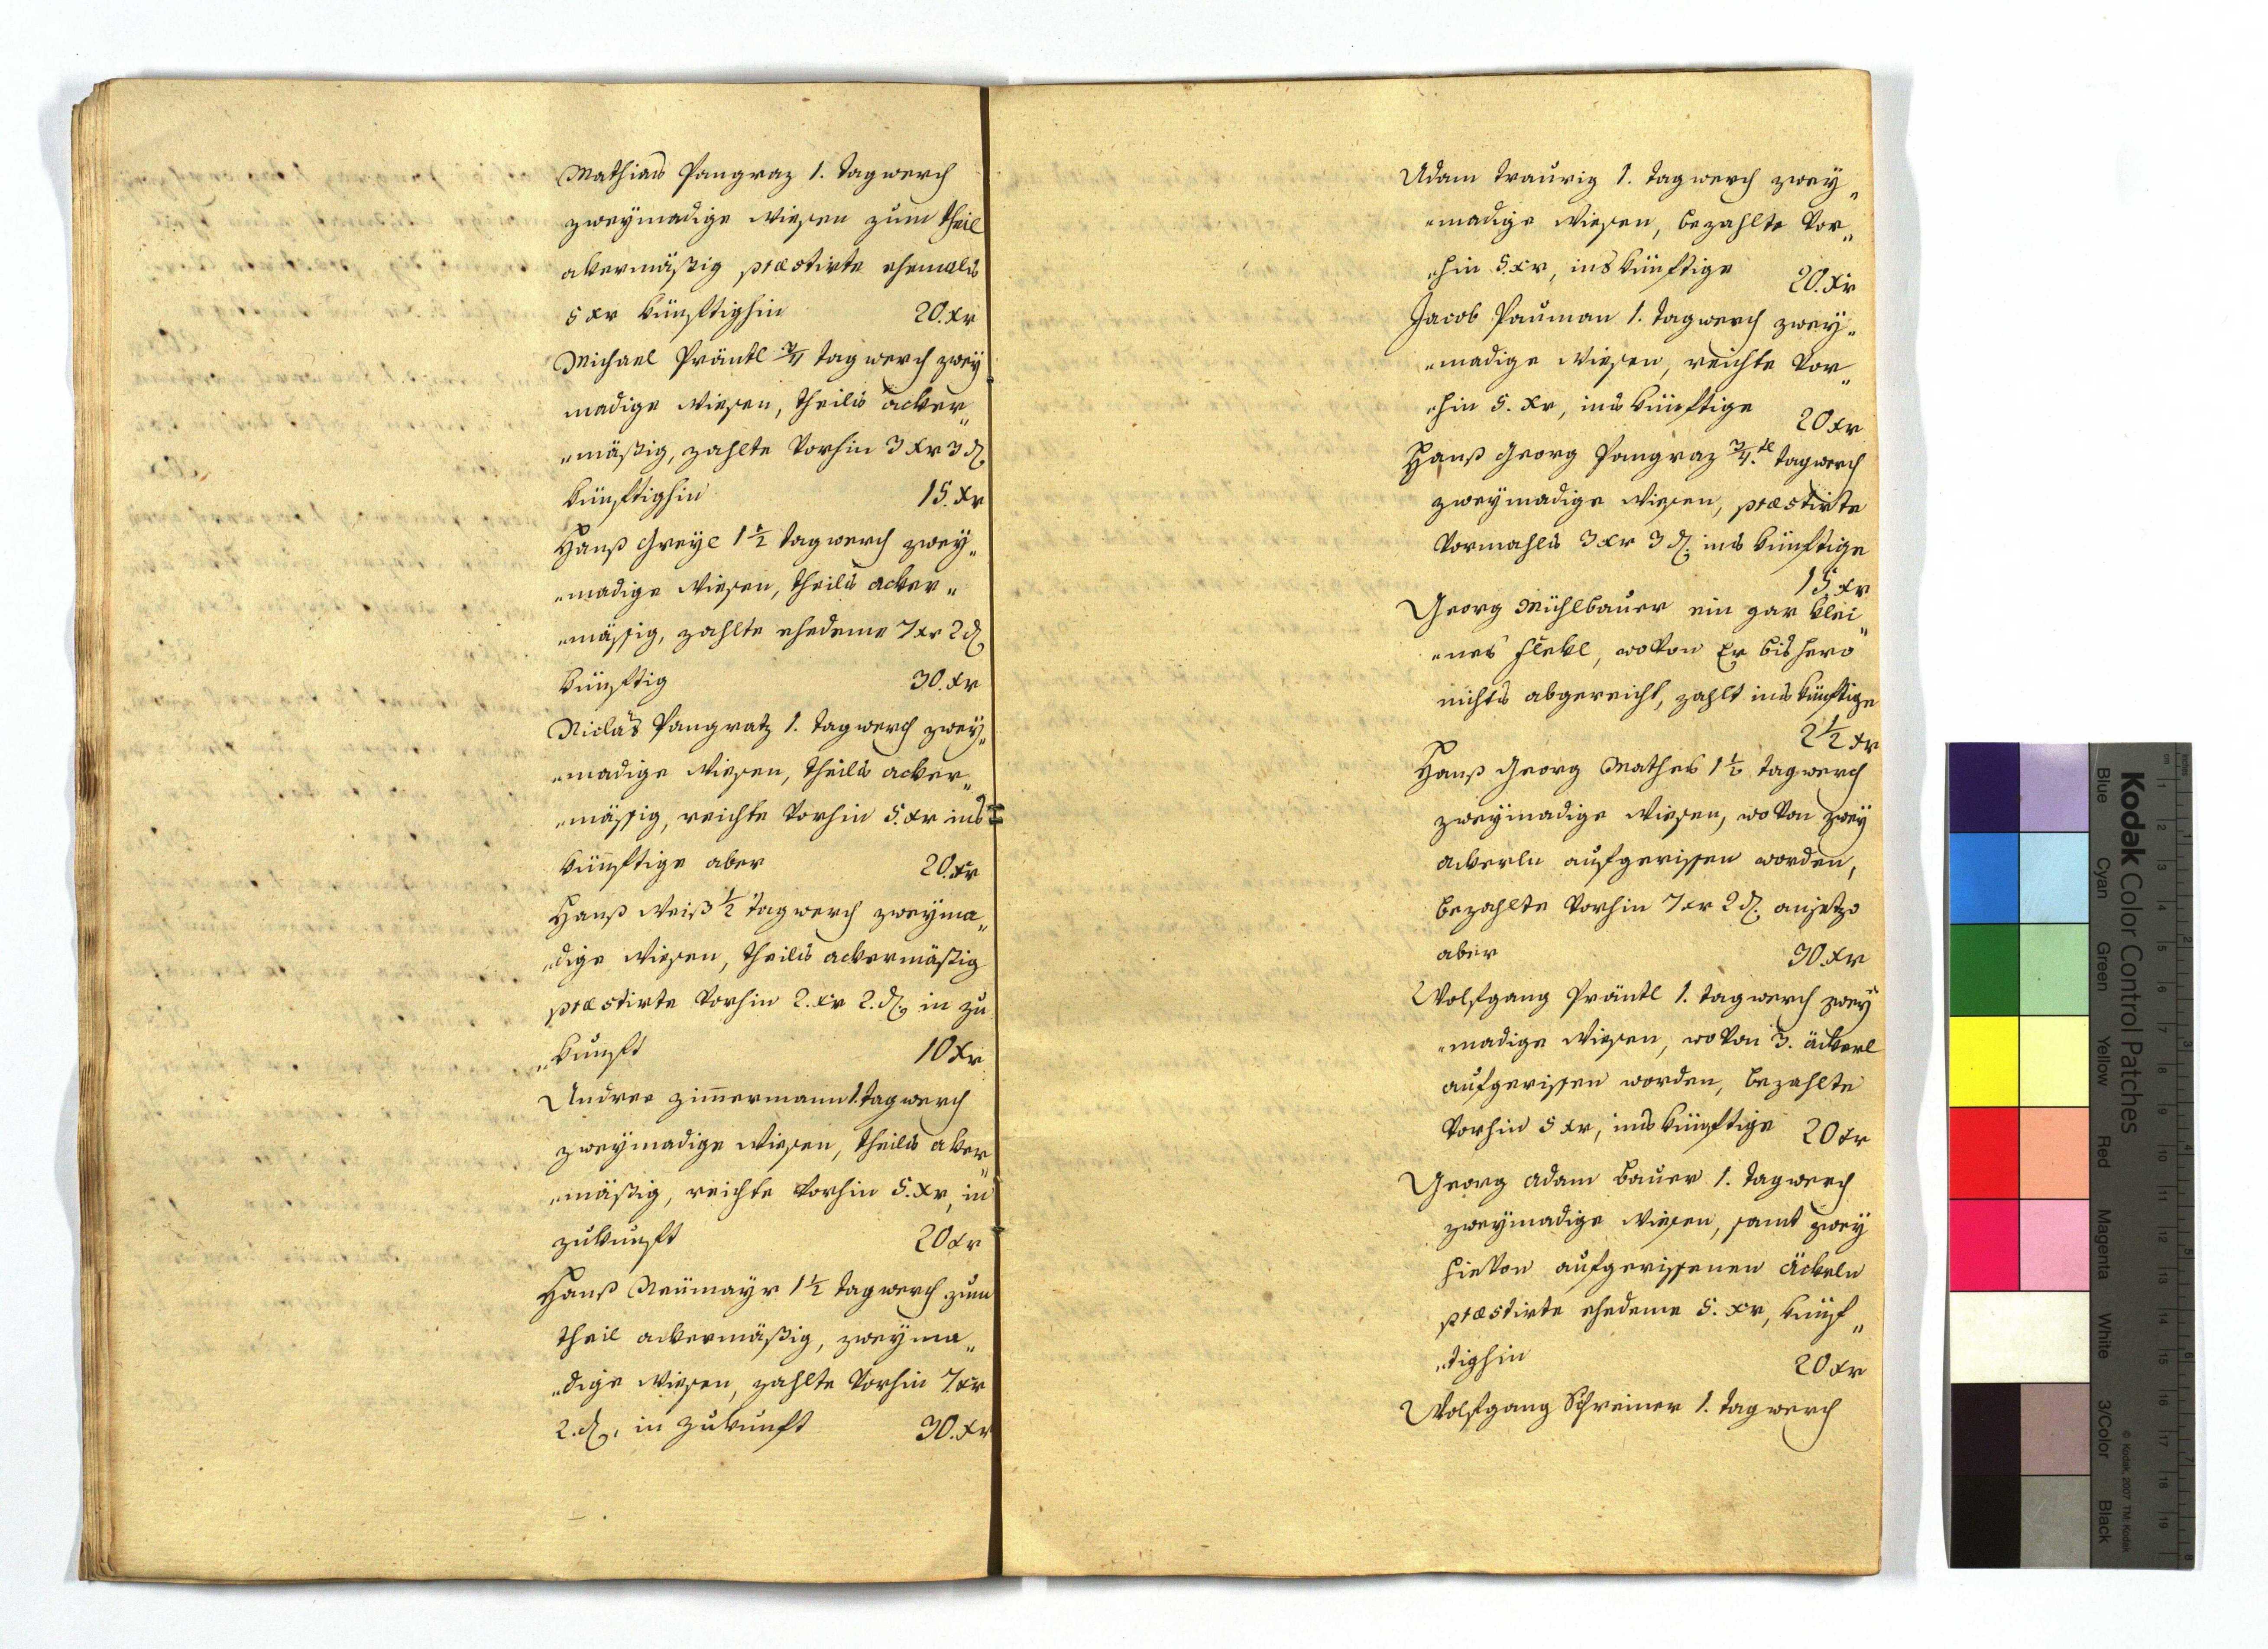 Mathias Pangraz 1. Tagwerch
zweymadige Wiesen zum theil
akermäßig præstirte ehemals
5 xr künftighin 20. xr
Michael Präntl 3/4 tagwerch zwey
madige Wiesen, theils acker„
„mäßig, zahlte Vorhin 3 xr 3 d
künftighin 15. xr
Hanß Greyl 1 1/2 tagwerch zwey„
„madige Wiesen, theils acker„
„mässig, zahlte ehedeme 7 xr 2 d
künftig 30. xr
Niclas Pangratz 1. tagwerch zwey„
„madige Wiesen, theils acker„
„mässig, reichte Vorhin 5. xr ins
künftige aber 20. xr
Hanß Weiß 1/2 Tagwerch zweyma„
„dige Wiesen, theils ackermäßig
præstirte Vorhin 2. xr 2. d, in zu
„kunft 10 xr
Andree Zimmermann 1. tagwerch
zweymadige Wiesen, theils aker„
„mäßig, reichte Vorhin 5. xr, in
zukunft 20 xr
Hanß Neümayr 1 1/2 tagwerch zum
theil ackermäßig, zweyma„
„dige Wiesen, zahlte Vorhin 7. xr
2. d, in Zukunft 30. xr
Adam Traurig 1. tagwerch zwey„
„madige Wiesen, bezahlte Vor„
„hin 5. xr, ins künftige 20. xr
Jacob Pauman 1. tagwerch zwey„
„madige Wiesen, reichte Vor„
„hin 5. xr, ins künftige 20 xr
Hanß Georg Pangraz 3/4.tl tagwerch
zweymadige Wiesen, præstirte
Vormahls 3 xr 3 d. ins künftige
15 xr
Georg Mühlbauer ein gar klei„
„nes flekl, woVon Er bishero
nichts abgereicht, zahlt ins künftige
2 1/2 xr
Hanß Georg Mathes 1 1/2 tagwerch
zweymadige Wiesen, woVon zwey
ackerln aufgerissen worden,
bezahlte Vorhin 7 xr 2 d. anjetzo
aber 30. xr
Wolfgang Präntl 1. tagwerch zwey
„madige Wiesen, woVon 3. äckerl
aufgerissen worden, bezahlte
Vorhin 5 xr, ins künftige 20 xr
Georg Adam Bauer 1. tagwerch
zweymadige Wiesen, samt zwey
hieVon aufgerissenen Äckeln
præstirte ehedeme 5. xr, künf„
„tighin 20 xr
Wolfgang Schreiner 1. tagwerch
Kodak Color Control Patches
Blue Cyan Green Yellow Red Magenta White 3/Color Black
© Kodak, 2007 TM: Kodak